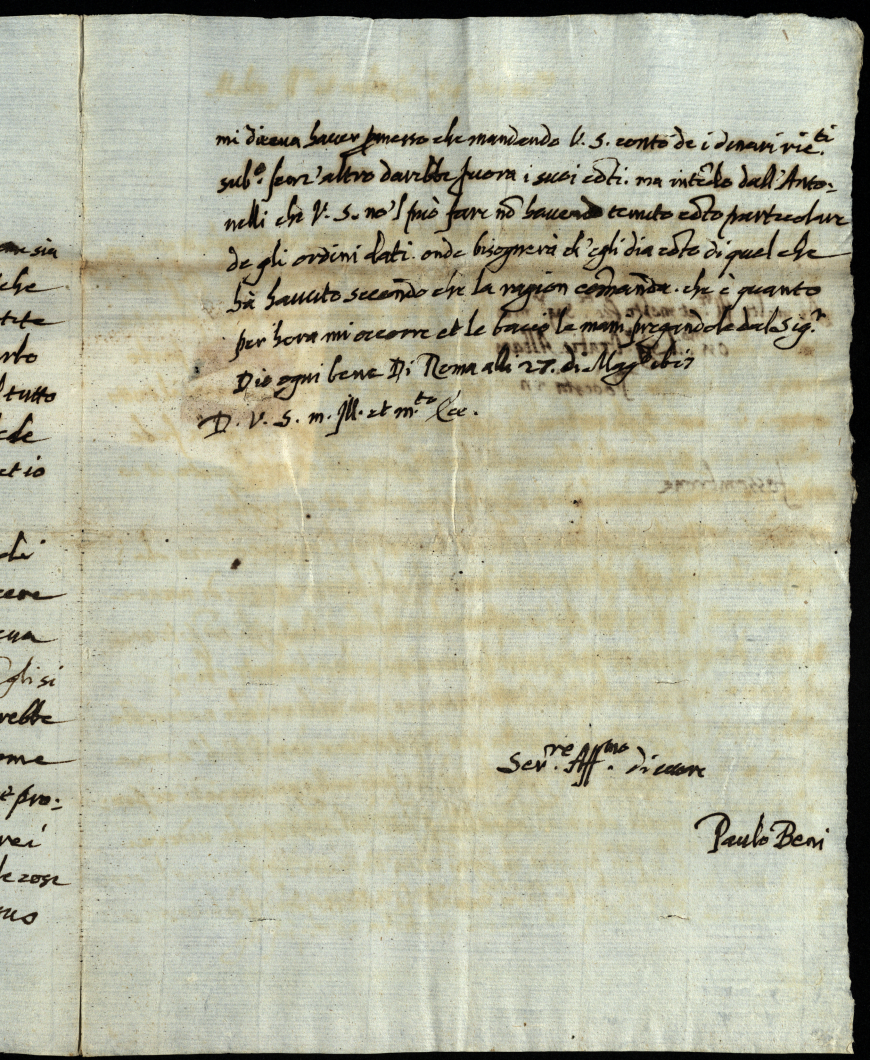 me sia
che
tete
rlo
l tutto
ede
et io
di
cere
cua
gli si
rebbe
ome
et pro:
rei
le cose
suo
mi diceva haver p̱messo che mandando V. S. conto de i denari rice.ti
sub.o senz'altro darebbe fuora i suoi cōti. ma intēdo dall'Anto:
nelli che V. S. no'l può fare nō havendo tenuto cōto particolare
de gli ordini dati. onde bisognerà ch'egli dia cōto di quel che
hà havuto secōndo che la ragion comāda. che è quanto
per hora mi occorre et le bacio le mani pregandole dal Sig.r
Dio ogni bene Di Roma alli 27. di Mag.o
D. V. S. m. Ill. et m.to Ecc.
Ser.re Aff.mo di cuore
Paulo Beni